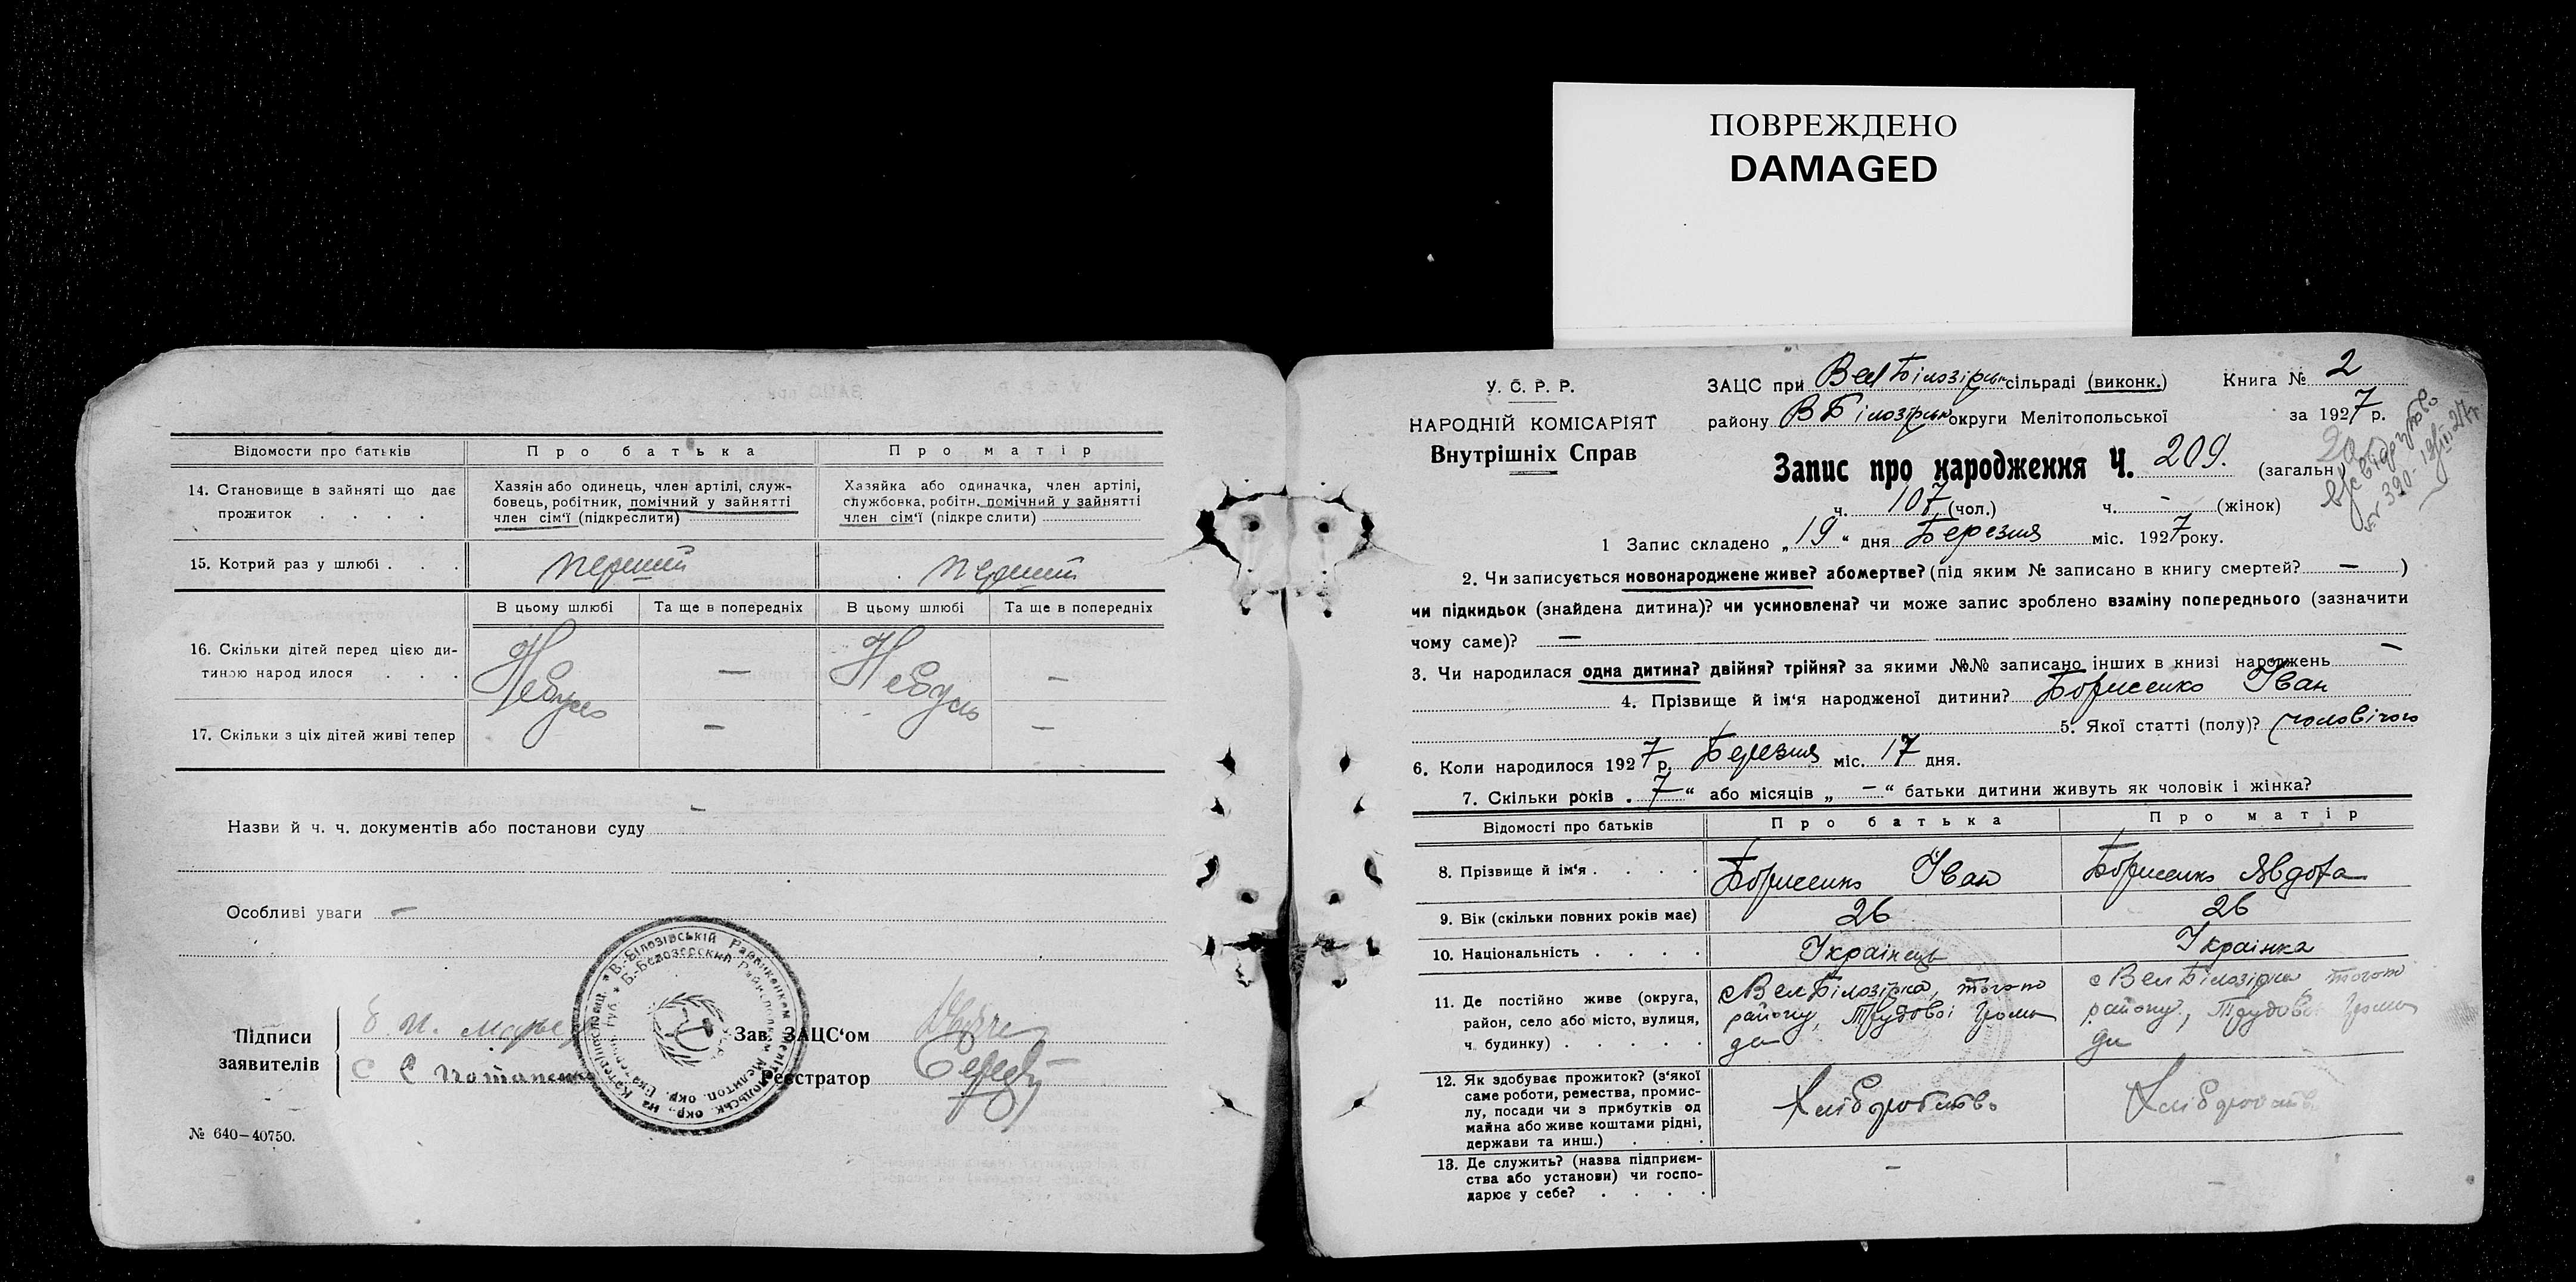 ПОВРЕЖДЕНО
DAMAGED
Відомости про батьків
Про батька
Про матір
14. Становище в зайняті що дає прожиток . . . .
Хазяін або одинець, член артілі, служ-
бовець, робітник, помічний у зайнятті
член сім'ї (підкреслити)
Хазяйка або одиначка, член артілі,
службовка, робітн. помічний у зайнятті
член сім'ї (підкреслити)
15. Котрий раз у шлюбі . . .
перший
перший
В цьому шлюбі
Та ще в попередніх
В цьому шлюбі
Та ще в попередніх
16. Скільки дітей перед цією ди-
тиною народилося . . .
Небуло
—
Небуло
—
17. Скільки з ціх дітей живі тепер
—
—
Назви й ч. ч. документів або постанови суду —
Особливі уваги —
Підписи
заявителів
С Потапенко
Зав. ЗАЦС'ом
Реєстратор
№ 640—40750.
У. С. Р. Р.
НАРОДНІЙ КОМІСАРІЯТ
Внутрішніх Справ
ЗАЦС при Вел Білозірськ сільраді (виконк.)
Книга № 2
району ВБілозірськ округи Мелітопольської
за 1927 р.
Запис про народження Ч. 209. (загальн.)
ч. 107 (чол.) ч. - (жінок)
1 Запис складено „19“ дня Березня міс. 1927 року.
2. Чи записується новонароджене живе? або мертве? (під яким № записано в книгу смертей? — )
чи підкидьок (знайдена дитина)? чи усиновлена? чи може запис зроблено взаміну попереднього (зазначити
чому саме)? —
3. Чи народилася одна дитина? двійня? трійня? за якими №№ записано інших в книзі народжень —
4. Прізвище й ім'я народженої дитини? Борисенко Іван
5. Якої статті (полу)? чоловічого
6. Коли народилося 1927 р. Березня міс. 17 дня.
7. Скільки років „7“ або місяців „—“ батьки дитини живуть як чоловік і жінка?
Відомості про батьків
Про батька
Про матір
8. Прізвище й ім'я . . . .
Борисенко Іван
Борисенко Явдоха
9. Вік (скільки повних років має)
26
26
10. Національність . . . .
Українець
Українка
11. Де постійно живе (округа,
район, село або місто, вулиця,
ч. будинку) . . . . .
с Вел Білозірка, того
району, Трудової Грома
ди
с Вел Білозірка, того
району, Трудової Грома
ди
12. Як здобуває прожиток? (з'якої
саме роботи, ремества, промис-
лу, посади чи з прибутків од
майна або живе коштами рідні,
держави та инш.) . . .
Хліборобство
Хліборобство
13. Де служить? (назва підприєм-
ства або установи) чи госпо-
дарює у себе? . . . .
—
—